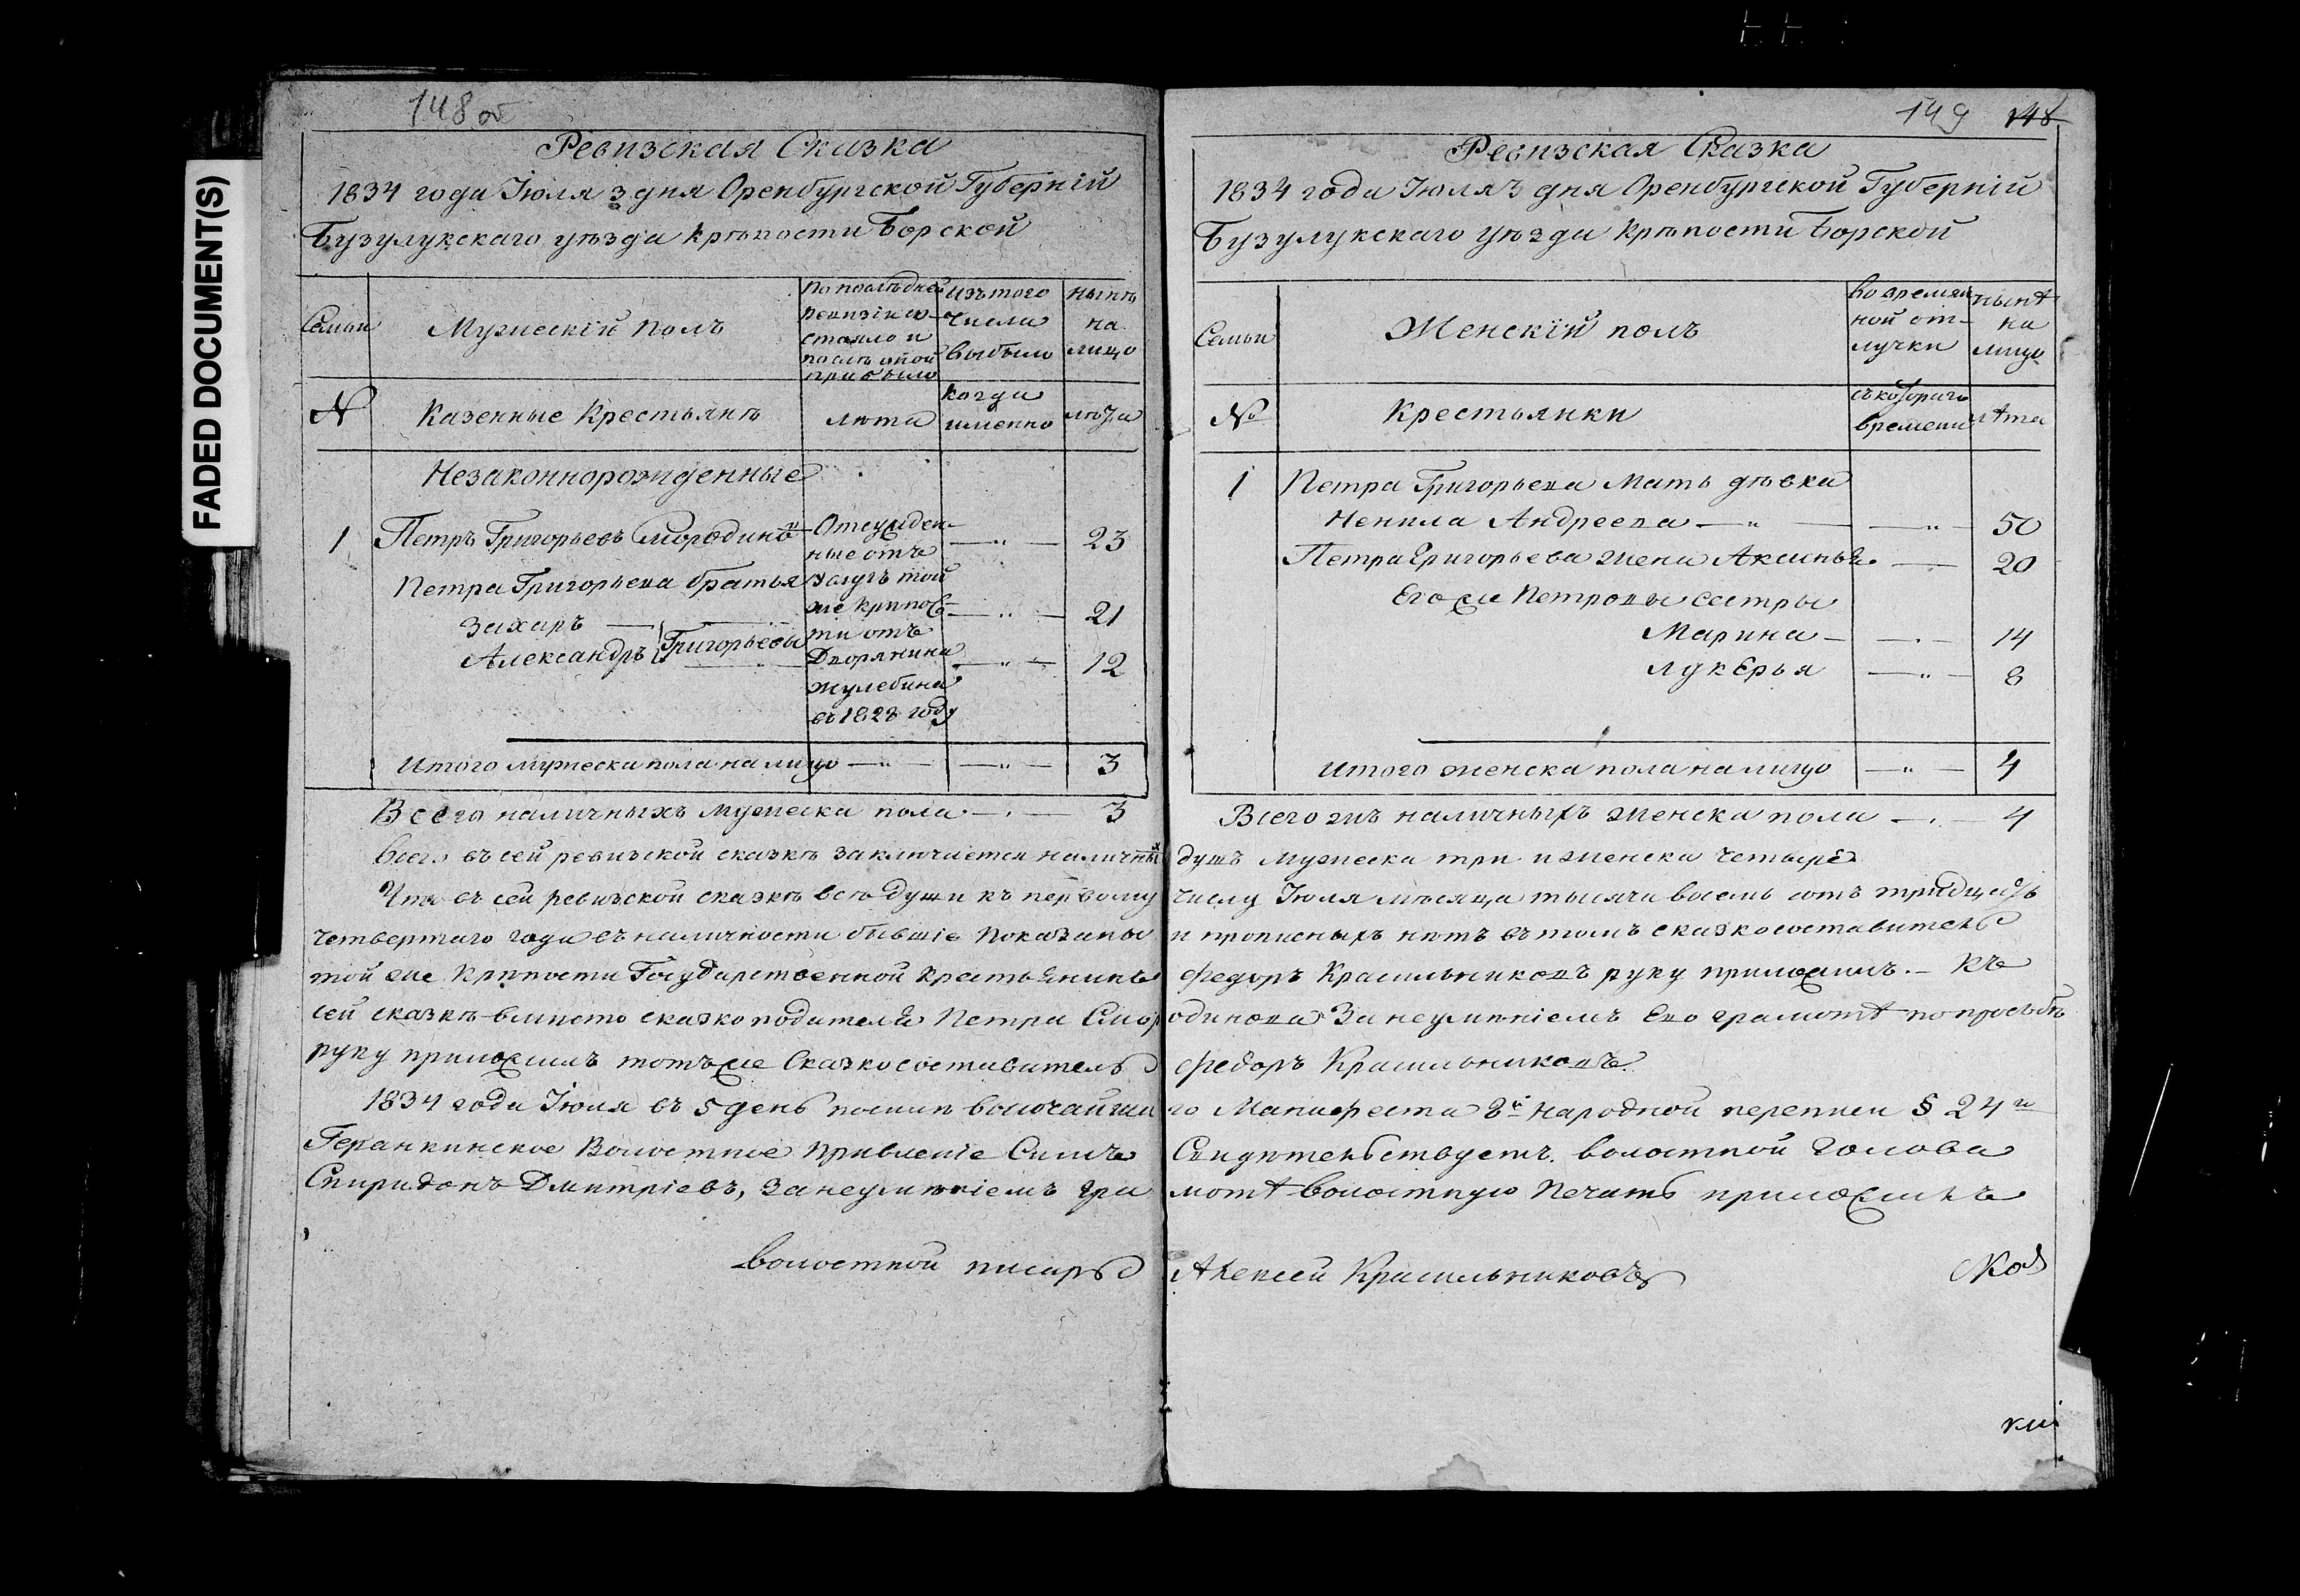 FADED DOCUMENT(S)
148 об
Ревизская Сказка
1834 года Іюля 3 дня Оренбургской Губерніи
Бузулукскаго уѣзда крѣпости Борской
Семьи
Мужескій полъ
По послѣдней
ревизіи со-
стояло и
послѣ оной
прибыло
изъ того
числа
выбыло
нынѣ
на
лицо
№
Казенные Крестьянѣ
лѣта
когда
именно
лѣта
Незаконнорожденные
1 Петръ Григорьевъ Смородиновъ 23
Петра Григорьева братья
Захаръ 21
Александръ Григорьевы 12
Отсужден-
ные отъ
той
же крѣпос-
ти отъ
Дворянина
Жулебина
въ 1828 году
Итого мужеска пола на лицо 3
Всего наличныхъ мужеска пола 3
Всего въ сей ревизской сказкѣ заключается наличныхъ
Что въ сей ревизской сказкѣ всѣ души къ первому
четвертаго года въ наличности бывшіе показаны
той же крѣпости Государственной крестьянинъ
сей сказкѣ вмѣсто сказкоподателя Петра Смор
руку приложилъ тотъ же Сказкосоставитель
1834 года Іюля въ 5 день по силѣ высочайша
Геранкинское Волостное Правленіе Симъ
Спиридонъ Дмитріевъ, за неумѣніемъ гра
волостной писарь
149 148
Ревизская Сказка
1834 года Іюля 3 дня Оренбургской Губерніи
Бузулукскаго уѣзда крѣпости Борской
Семьи
Женскій полъ
во времян
ной от-
лучки
нынѣ
на
лицо
№
Крестьянки
съ котораго
времени
лѣта
1 Петра Григорьева Мать дѣвка
Ненила Андреева 50
Петра Григорьева жена Аксинья 20
Его же Петровы сестры
Марина 14
Лукерья 8
Итого женска пола на лицо 4
Всего жъ наличныхъ женска пола 4
душъ мужеска три и женска четыре
числу Іюля мѣсяца тысяча восемь сотъ тридцать
и прописныхъ нѣтъ въ томъ сказкосоставитель
Федоръ Красильниковъ руку приложилъ. – Къ
одинова за неумѣніемъ его грамотѣ по просьбѣ
Федоръ Красильниковъ
го Манифеста 8й народной переписи § 24го
Свидѣтельствуетъ. волостной Голова
мотѣ волостную Печать приложилъ
Алексей Красильниковъ